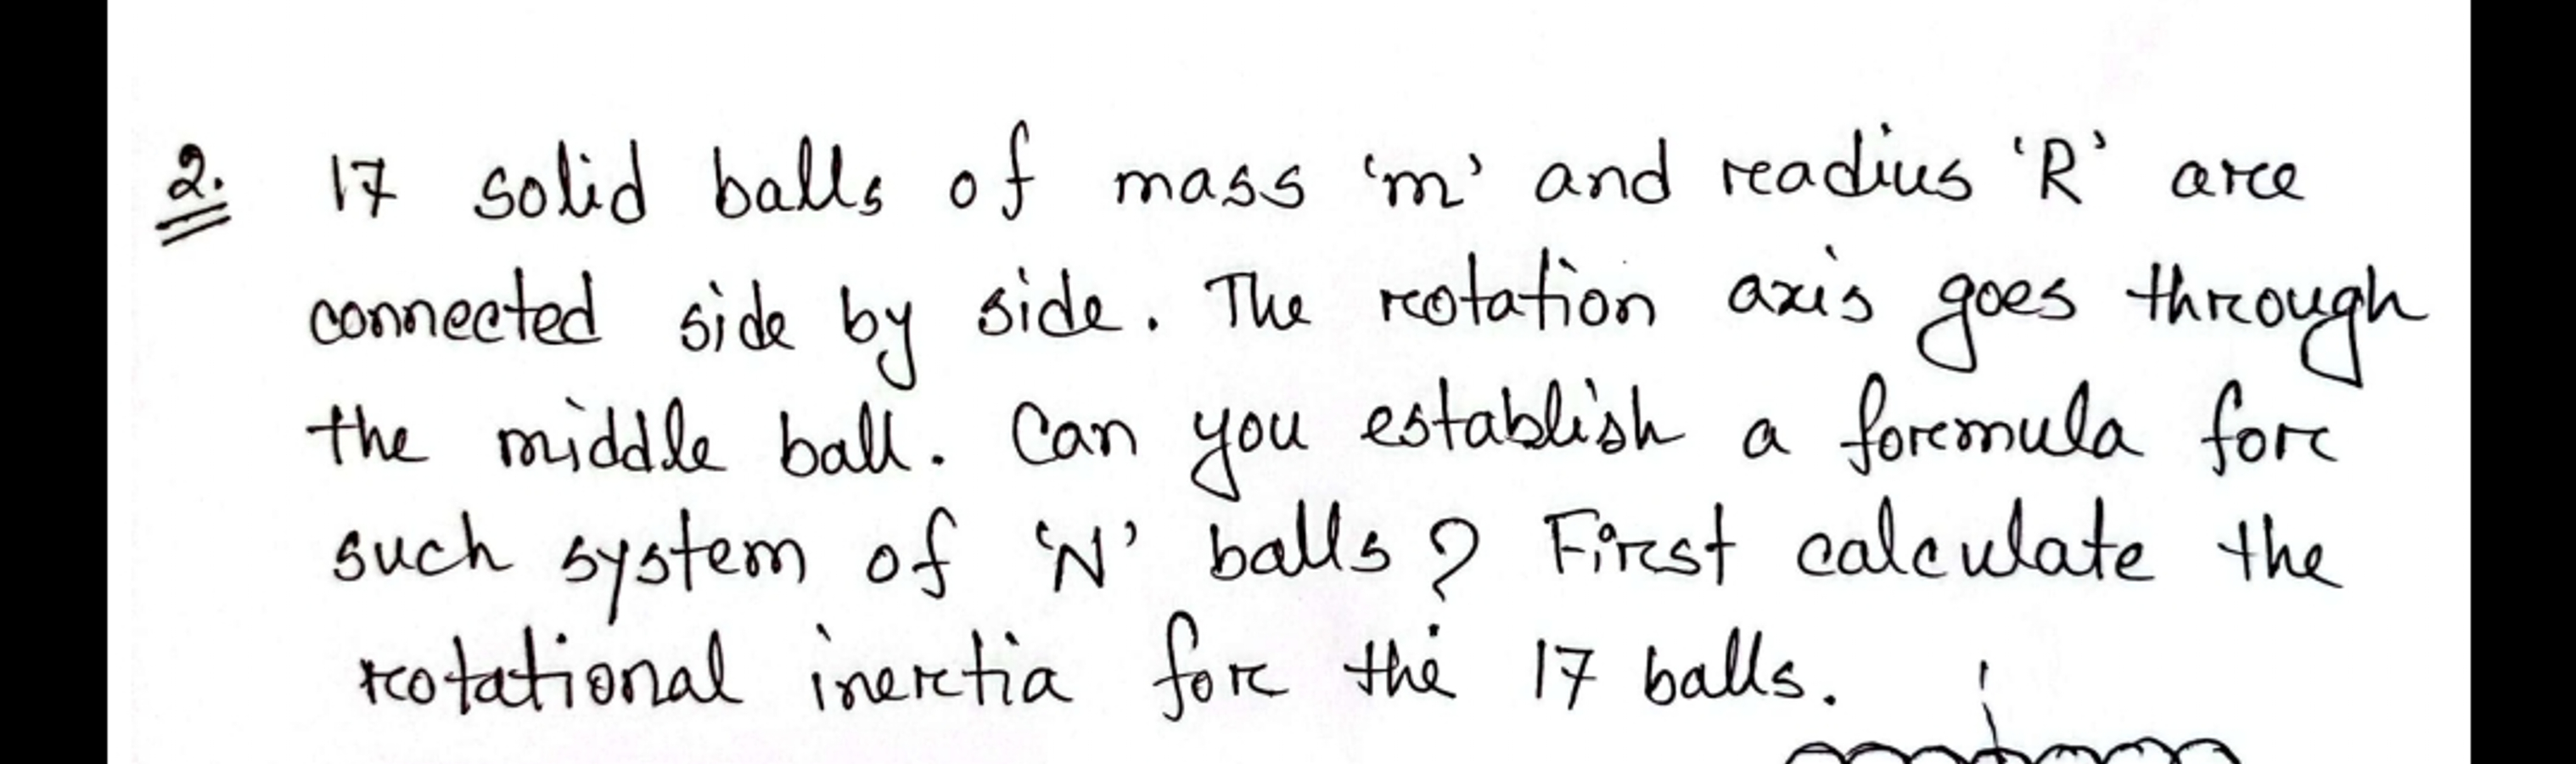 2. 17 solid balls of mass 'm' and radius 'R' are
connected side by side. The rotation axis goes through
the middle ball. Can you establish a formula for
such system of 'N' balls? First calculate the
rotational inertia for the 17 balls.